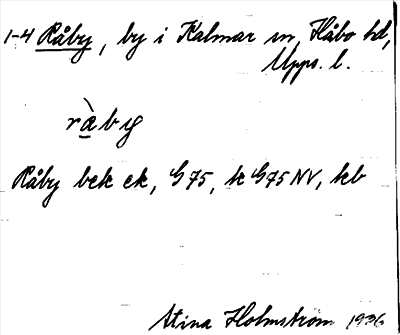 1-4 Råby, by i Kalmar sn, Håbo hd,
Upps. l.
ràby
Råby bek ek, G 75, k G 75 NV, kb
Stina Holmström 1936